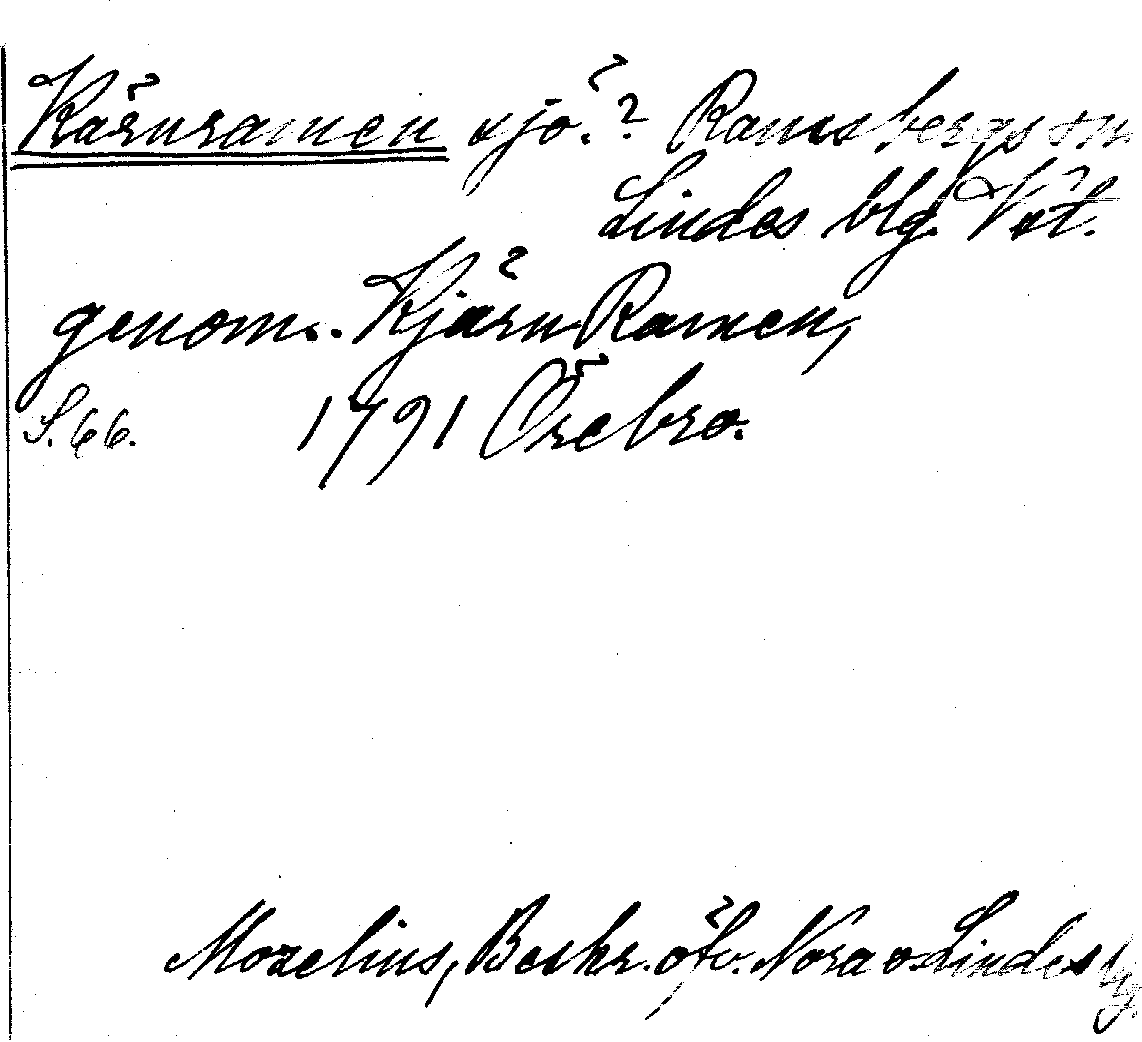 Kärnramen sjö? Ramsbergs sn.
Lindes blg. Vstl.
genom. Kjärn Ramen,
S. 66. 1791 Örebro.
Mozelius, Beskr. öfv. Nora o Lindes blg.